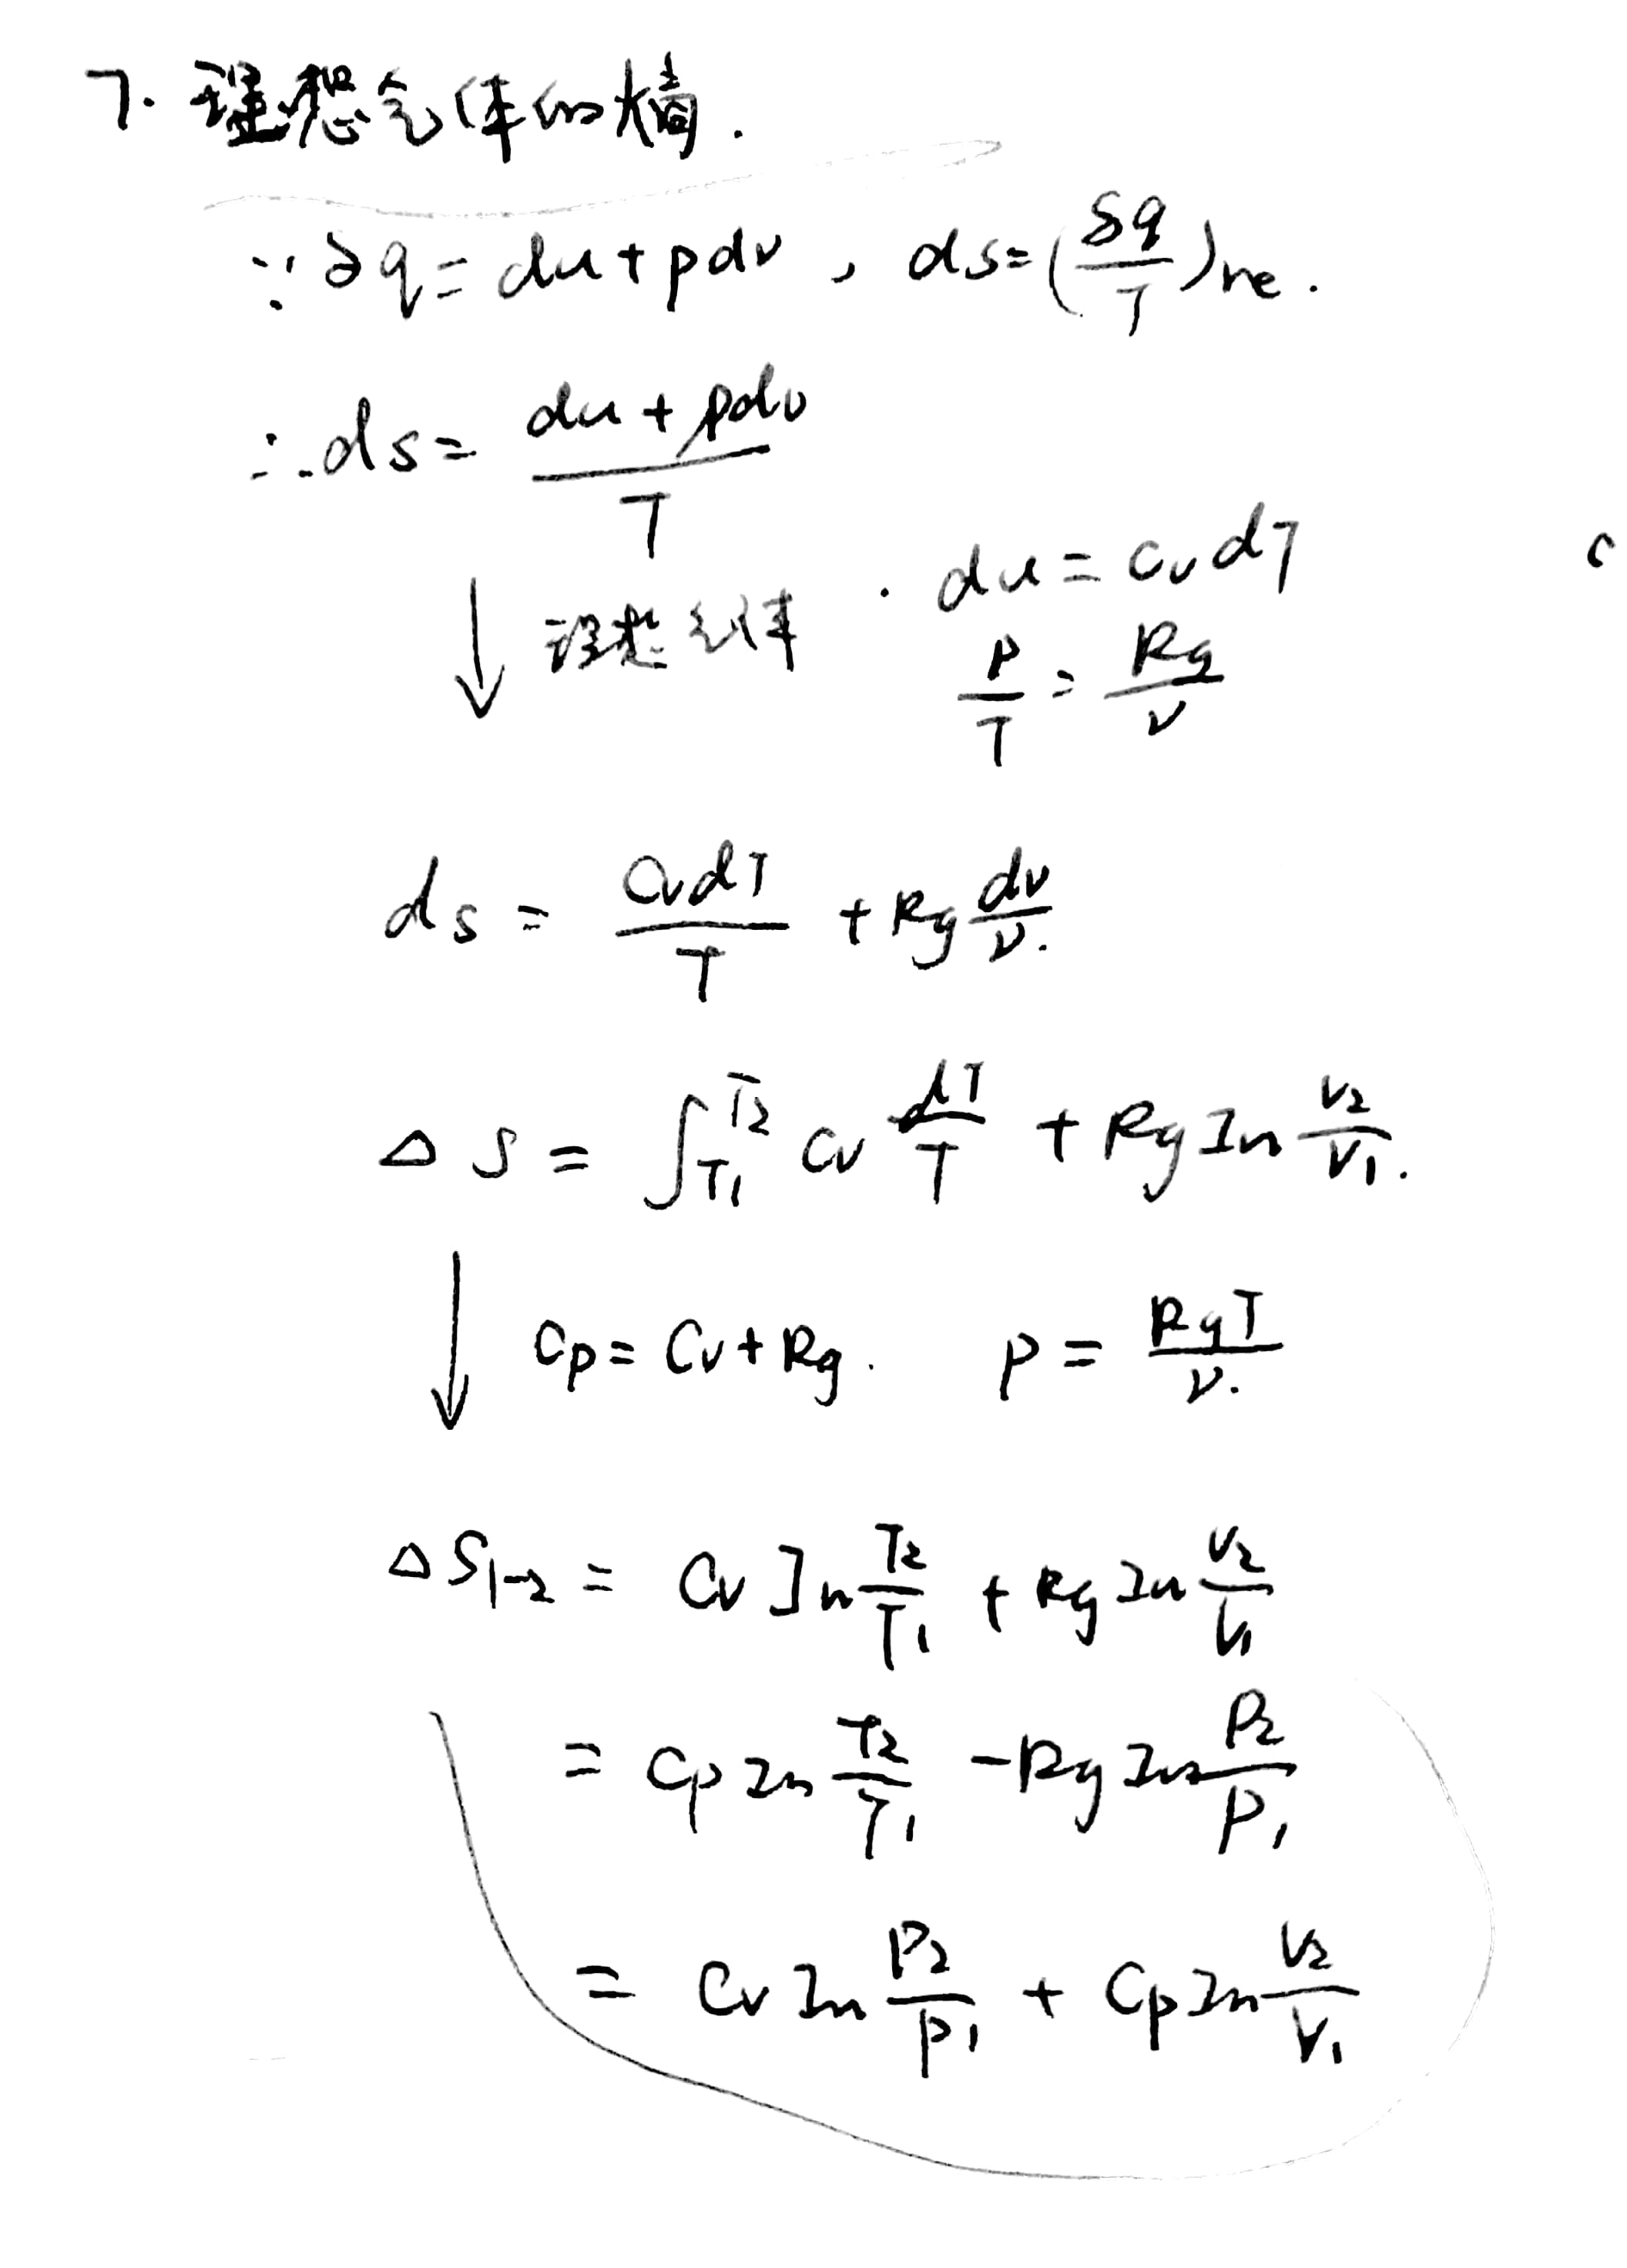 7. 理想气体的熵.
∵ δq = du + pdv , ds = (δq/T)re.
∴ ds = (du + pdv)/T
↓ 理想气体 · du = cv dT
p/T = Rg/v
ds = cv dT/T + Rg dv/v.
Δs = ∫T1^T2 cv dT/T + Rg ln v2/v1.
↓ cp = cv + Rg. p = RgT/v.
ΔS1-2 = cv ln T2/T1 + Rg ln v2/v1
= cp ln T2/T1 - Rg ln p2/p1
= cv ln p2/p1 + cp ln v2/v1